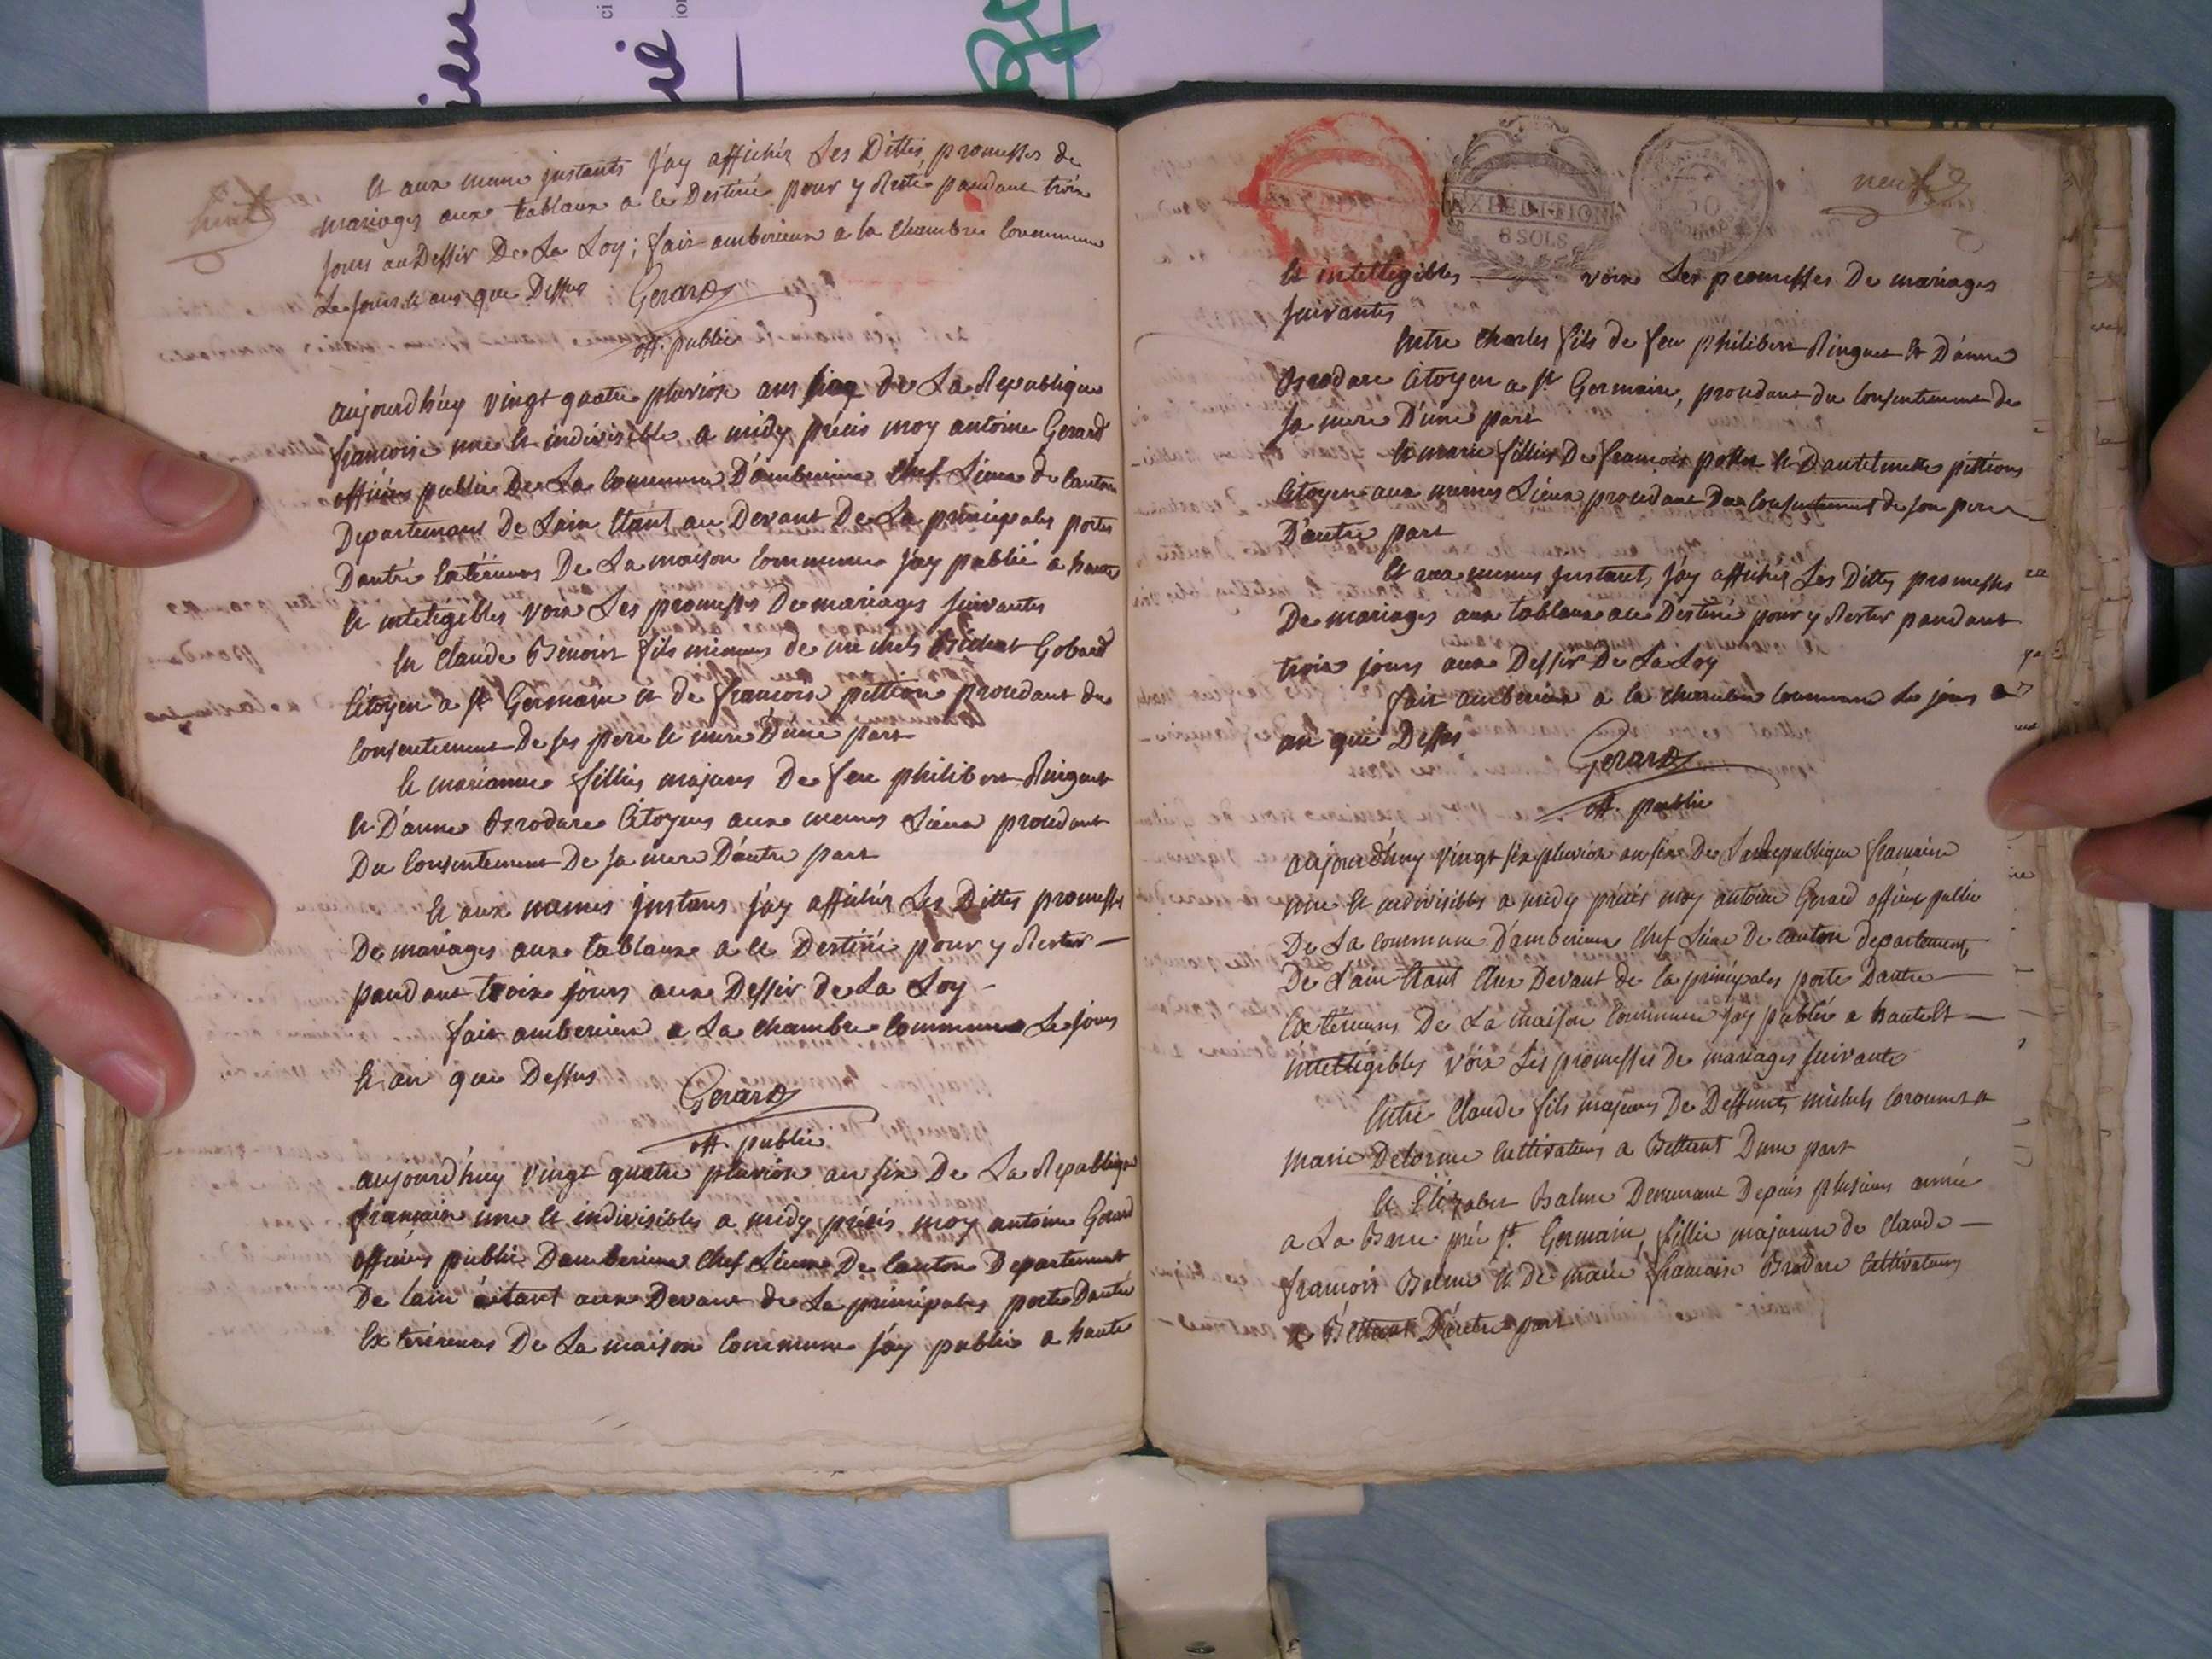 et aux meme jnstants j'ay affichéz Les Dittes promesses de
mariages aux tablaux a ce Destiné pour y Resté pandant trois
jours au Dessir De La Loy; fair amberieux a la Chambre Commune
Le jours et ans que Dessus Gerard
off. public
aujourd'huy vingt quatre pluviose ans six de La Republique
françoise une et indivisible a midy précis moy antoine Gerard
officiers public De La Commune D'amberieux Chef Lieux de Canton
Departement De Lain Etant au Devant De La principales portes
Dantré Exterieurs De La maison Commune j'ay publié a haute
et intelegibles voix Les promesses De mariages suivantes
En Claude Benoist fils mineurs de michel Gobard
Citoyen a st Germain et de francoise pittion procedant du
Consentement De ses pere et mere D'une part
et marianne fillies majeurs De feu philibert Ringuet
et D'anne Brodare Citoyens aux memes Lieux procedant
Du Consentement De sa mere D'autre part
Et aux memes jnstans j'ay affichés Les Dittes promesses
De mariages aux tablaux a ce Destiné pour y Rester
pandant trois jours aux Dessir de La Loy
fair amberieux a La Chambre Commune Le jours
et an que Dessus Gerard
off. public
aujourd'huy vingt quatre pluviose an six De La Republique
francaise une et indivisibles a midy précis moy antoine Gerard
officiers public Damberieux Chef Lieux De Canton Departement
De Lain étant aux Devant de La principales porte Dantré
Exterieurs De La maison Commune j'ay public a haute
neuf
EXPEDITION
8 SOLS
et intellegibles voix Les promesses De mariages
suivantes
Entre Charles fils de feu philibert Ringuet et D'anne
Brodare Citoyen a st Germain, procedant du Consentement de
sa mere D'une part
et marie fillies De francois et Dantelmette pittions
Citoyen aux memes Lieux procedant Du Consentement de son pere
D'autre part
Et aux memes jnstant j'ay affichez Les Dittes promesses
De mariages aux tablaux a ce Destiné pour y Rester pandant
trois jours aux Dessir De La Loy
fair amberieux a la Chambre Commune Le jours et
an que Dessus Gerard
off. public
aujourd'huy vingt six pluviose an six De La Republique francaise
une et indivisibles a midy précis moy antoine Gerard officier public
De La Commune D'amberieux Chef Lieux De Canton departement
De L'ain Etant Aux Devant de la principales porte Dantre
Exterieurs De La maison Commune j'ay publié a haute et
intellegibles voix Les promesses de mariages suivante
Entre Claude fils majeurs De Deffunts michels et
marie Delorme Cultivateurs a Bettant Dune part
et Elizabet Balme Demeurant Depuis plusieurs année
a La Barre pré st. Germain, fillie majeure de Claude
francois Balme et De marie francoise Brodare Cultivateurs
a Bettant D'autre part